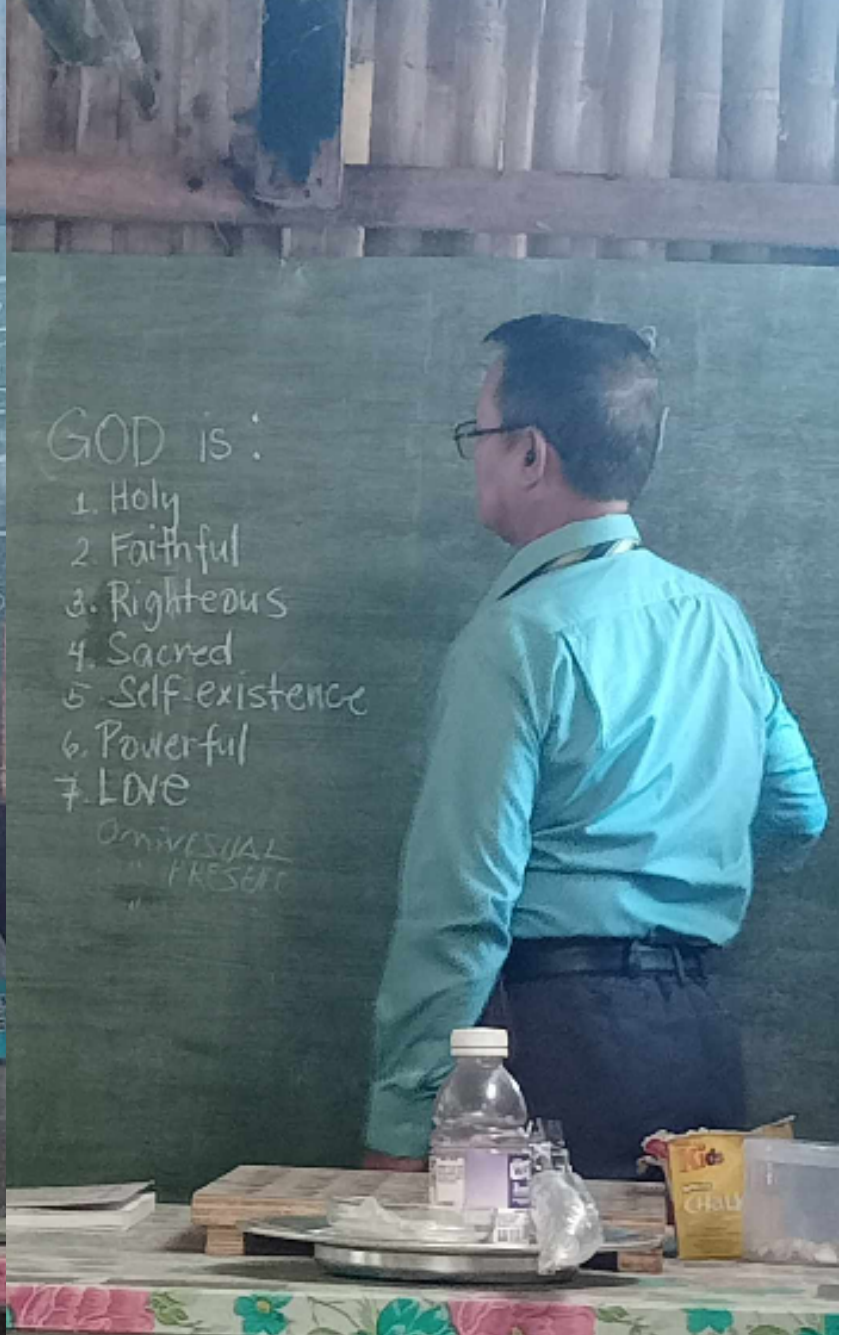 GOD is:
1. Holy
2. Faithful
3. Righteous
4. Sacred
5 Self-existence
6. Powerful
7. Love
" PRESENT
"
Kids
CHALK